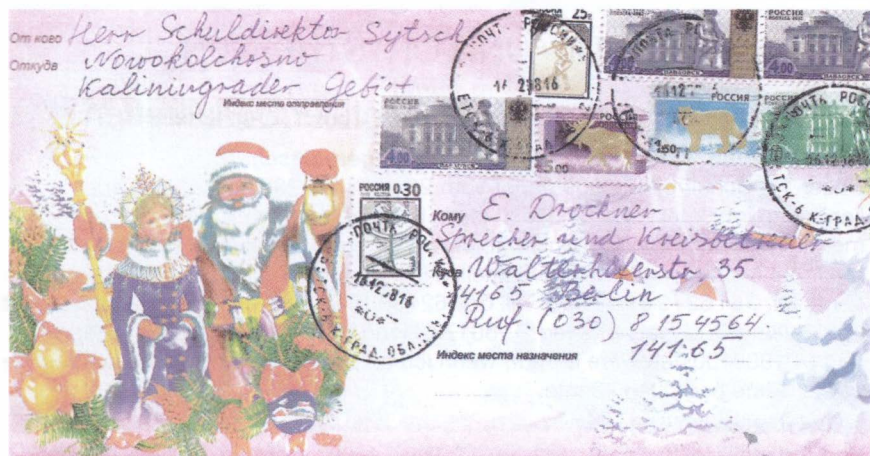 От кого Herr Schuldirektor Sytsch
Откуда Nowokolchosno
Kaliningrader Gebiet
Индекс места отправления
25
РОССИЯ
4.00
4.00
РОССИЯ
4.00
РОССИЯ
1.50
5.00
ПОЧТА РОССИИ
16 12 0816
РОССИЯ 0.30
ПОЧТА РОССИИ
16 12 0816
К-ГРАД. ОБЛ.
Кому E. Drockner
Sprecher und Kreisbetreuer
Куда Walterhöferstr. 35
14165 Berlin
Ruf. (030) 8 154564.
14165
Индекс места назначения